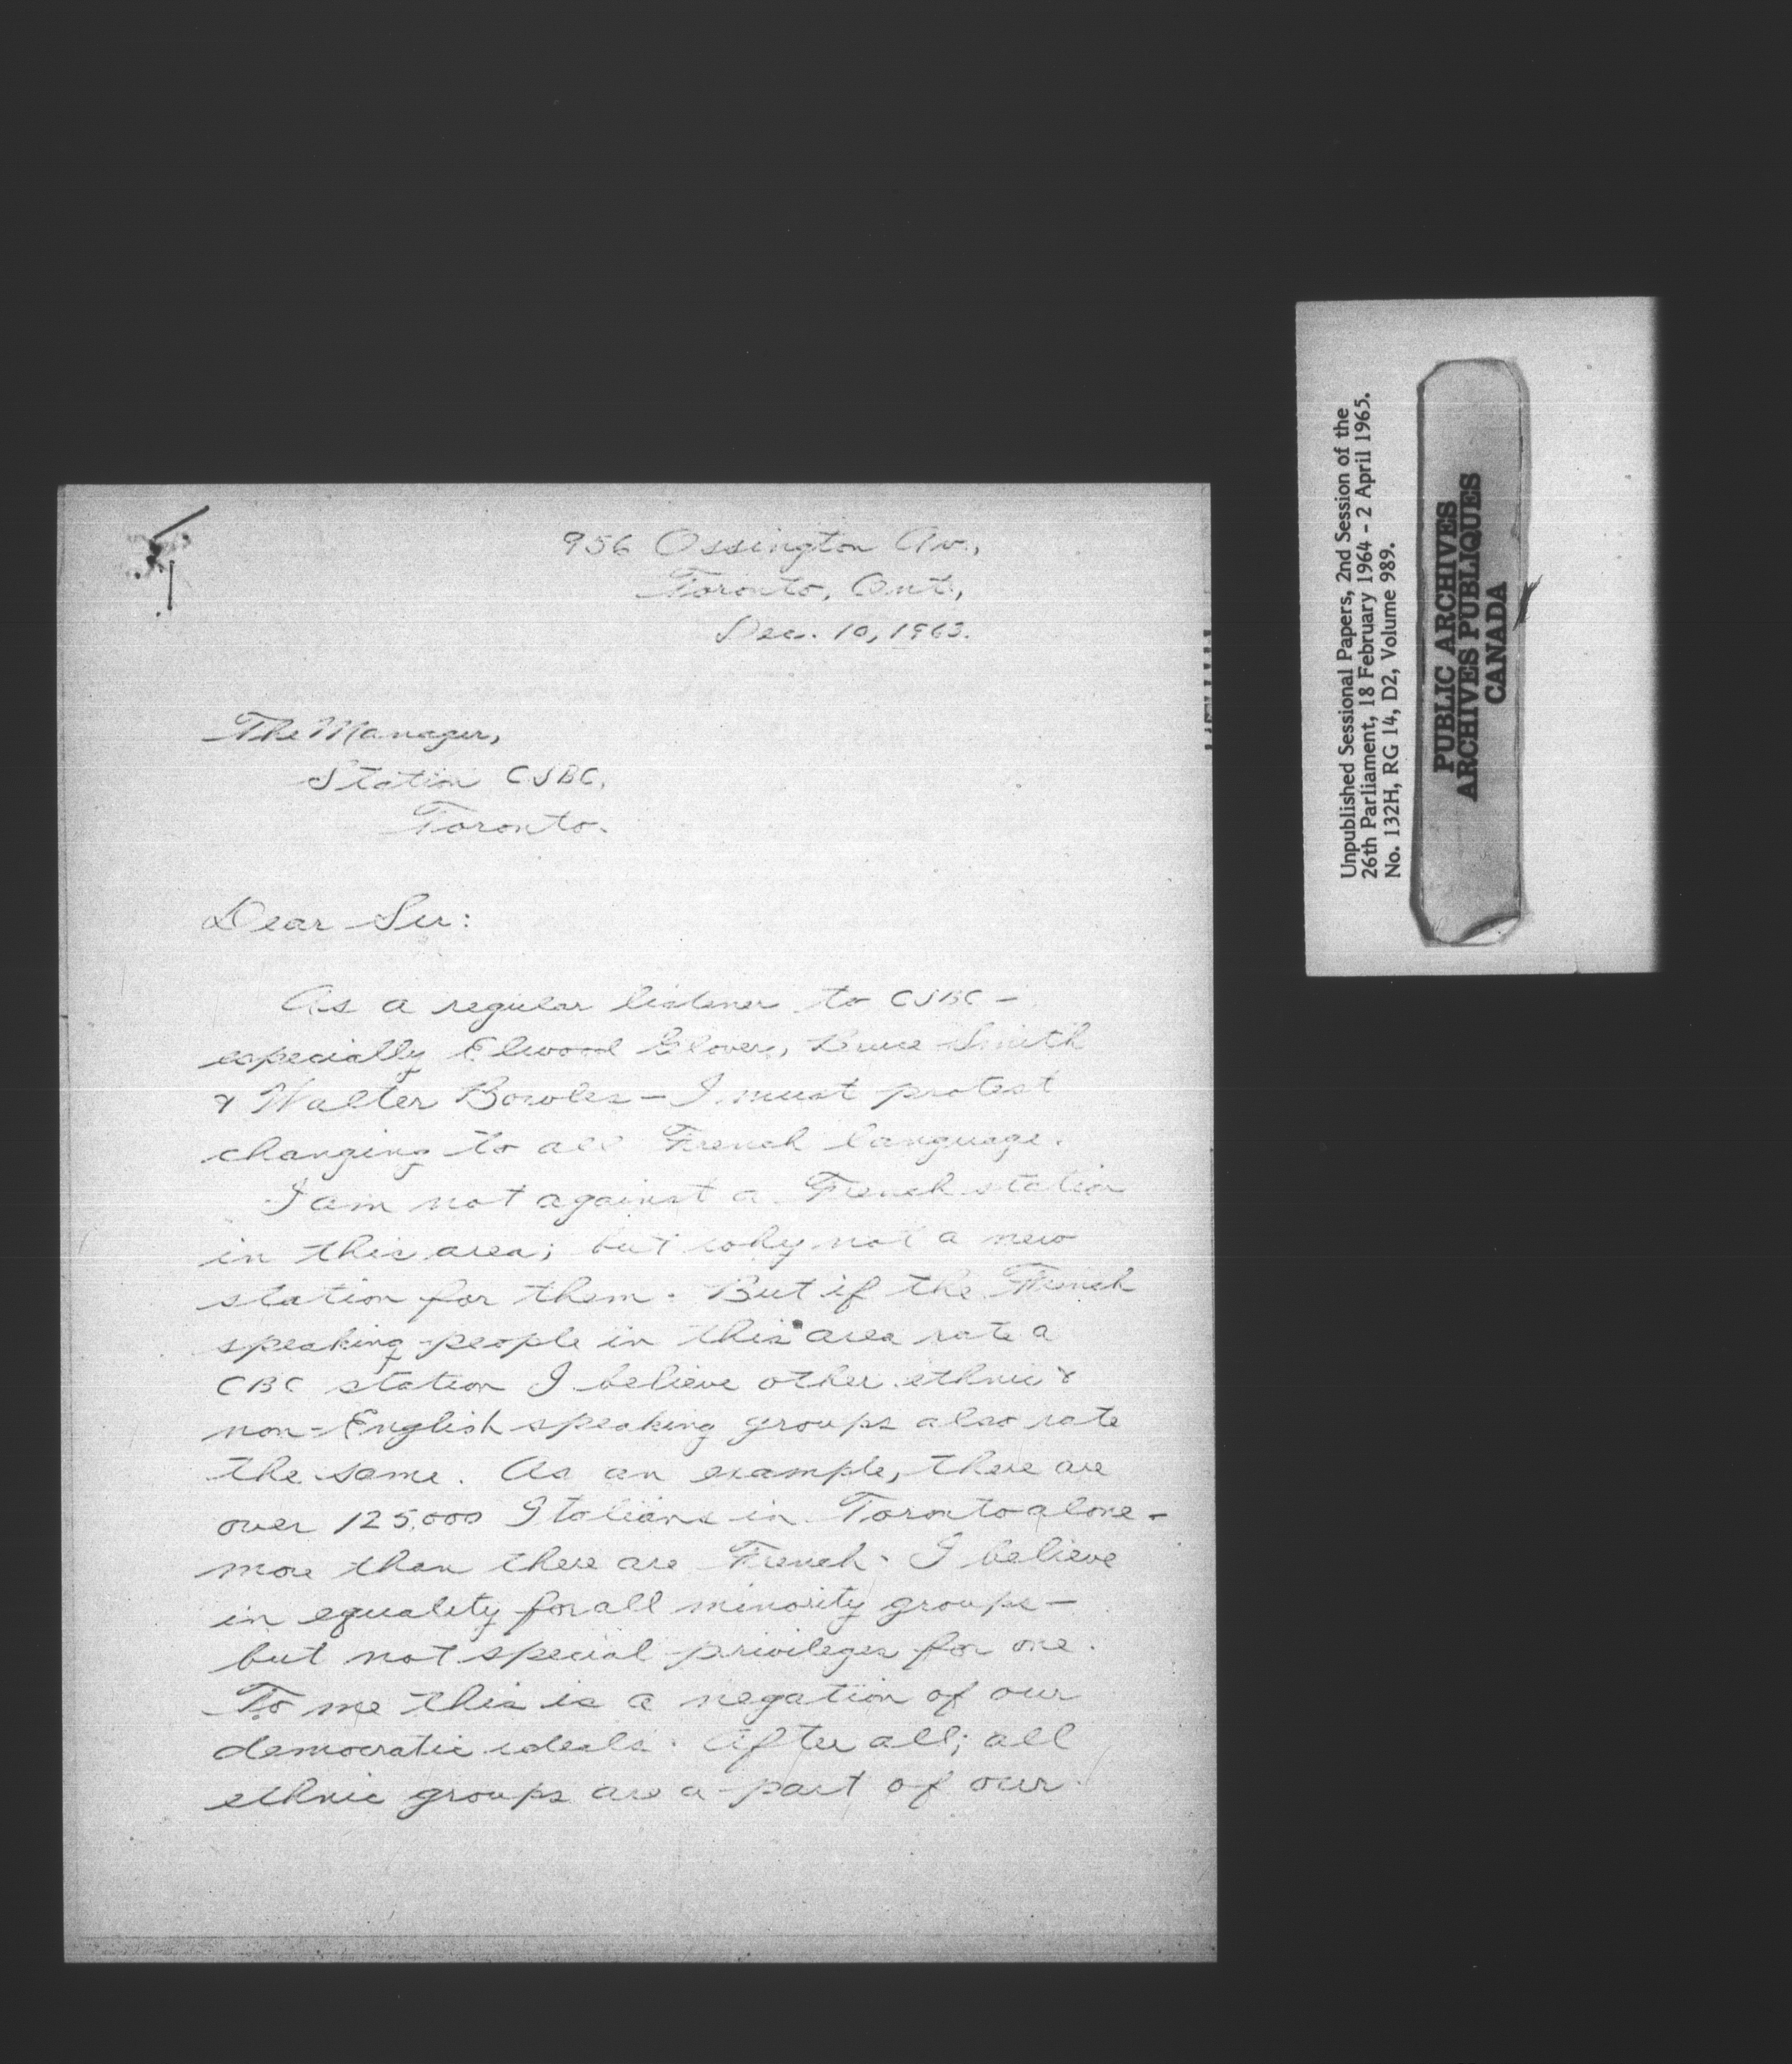 956 Ossington Av.,
Toronto, Ont.,
Dec. 10, 1963.
The Manager,
Station CJBC,
Toronto.
Dear Sir:
As a regular listener to CJBC –
especially Elwood Glover, Bruce Smith
& Walter Bowles – I must protest
changing to all French language.
I am not against a French station
in this area; but why not a new
station for them. But if the French
speaking people in this area rate a
CBC station I believe other ethnic &
non-English speaking groups also rate
the same. As an example, there are
over 125,000 Italians in Toronto alone –
more than there are French. I believe
in equality for all minority groups –
but not special privileges for one.
To me this is a negation of our
democratic ideals. After all; all
ethnic groups are a part of our
Unpublished Sessional Papers, 2nd Session of the
26th Parliament, 18 February 1964 - 2 April 1965.
No. 132H, RG 14, D2, Volume 989.
PUBLIC ARCHIVES
ARCHIVES PUBLIQUES
CANADA